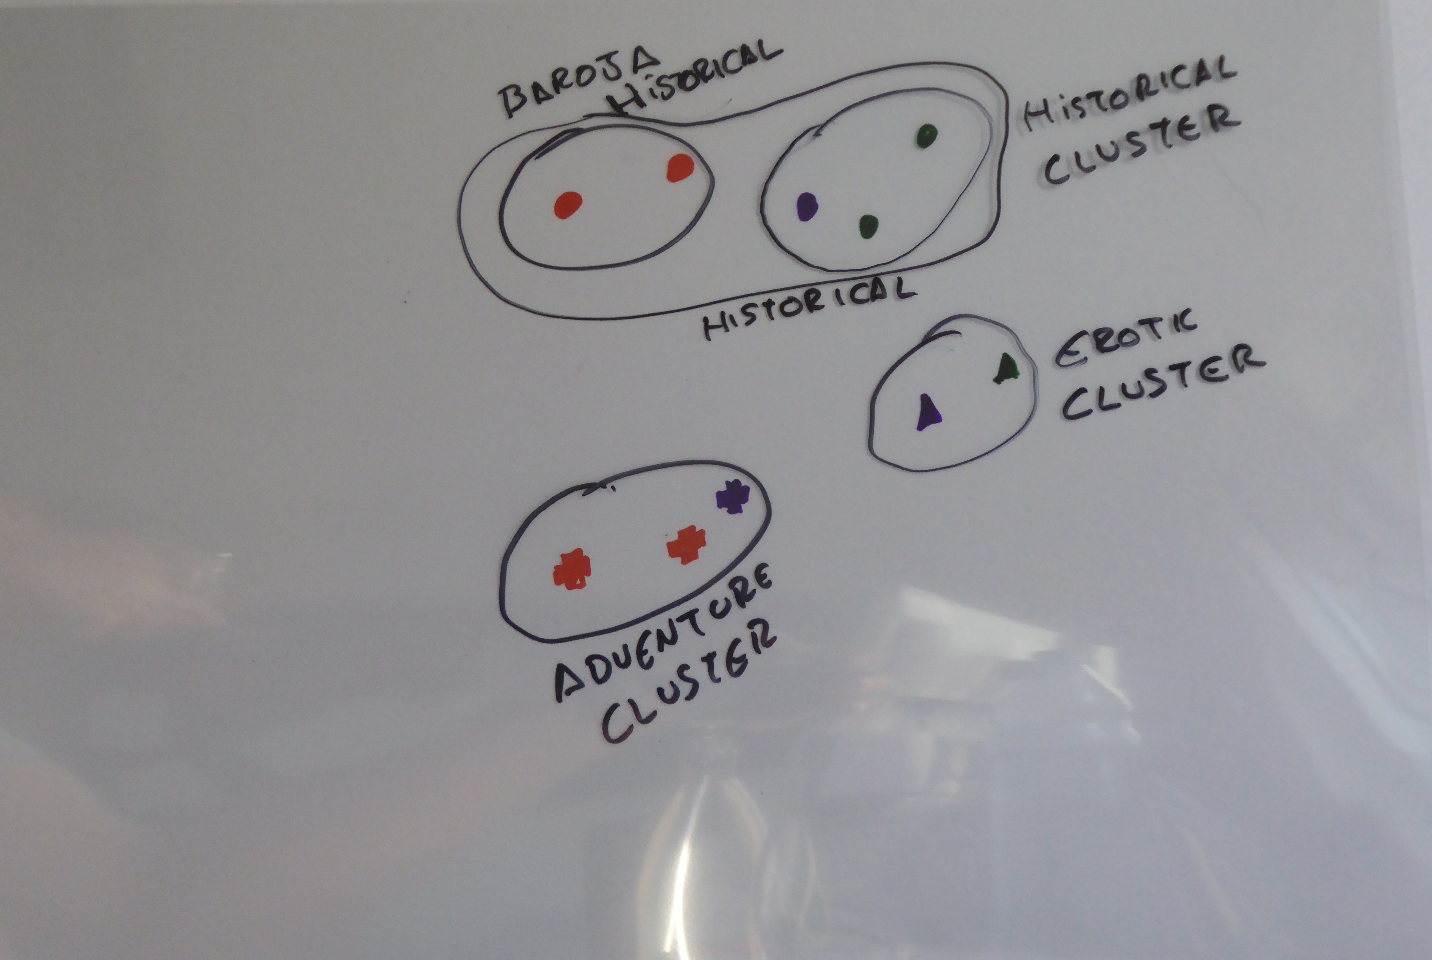 BAROJA
HiSTORICAL
HiSTORICAL
CLUSTER
HiSTORICAL
EROTIC
CLUSTER
ADVENTURE
CLUSTER